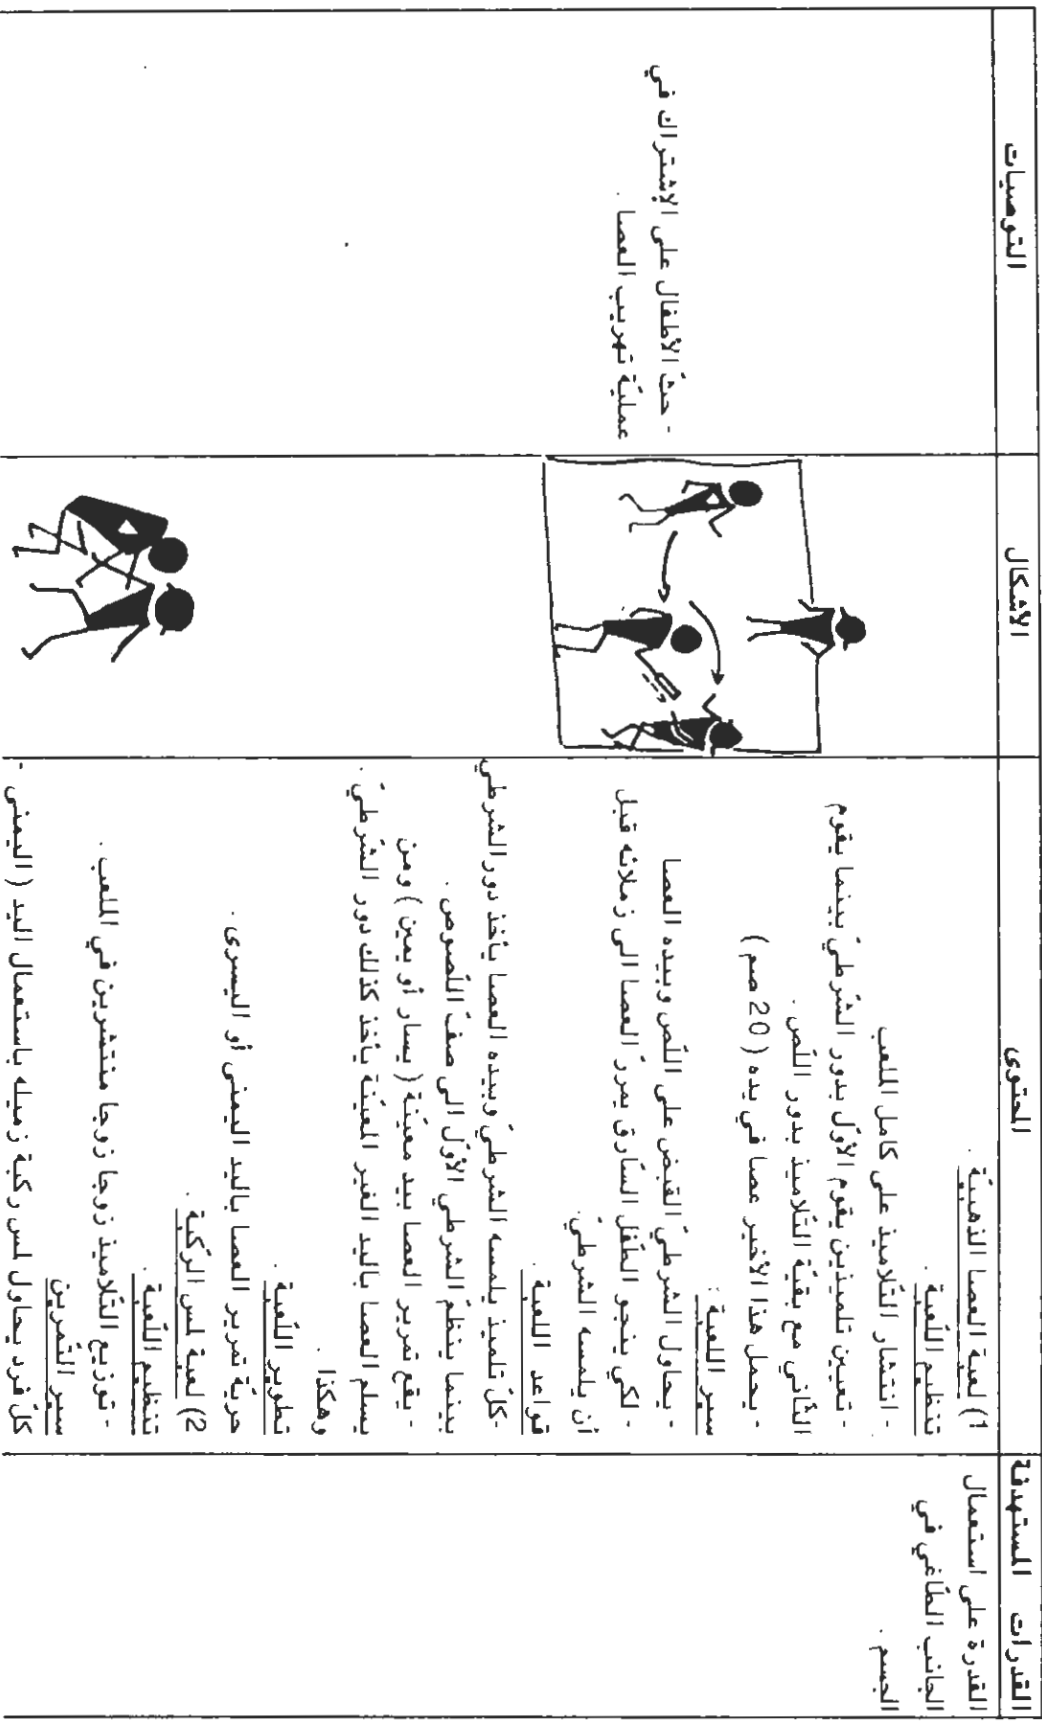 القدرات المستهدفة
القدرة على استعمال
الجانب الطّاغي في
الجسم .
المحتوى
1) لعبة العصا الذهبيّة .
تنظيم اللّعبة .
- انتشار التّلاميذ على كامل الملعب
- تعيين تلميذين يقوم الأوّل بدور الشّرطيّ بينما يقوم
الثّاني مع بقيّة التّلاميذ بدور اللّص .
- يحمل هذا الأخير عصا في يده ( 20 صم )
سير اللعبة :
- يحاول الشرطيّ القبض على اللّص وبيده العصا
- لكي ينجو الطّفل السّارق يمررّ العصا الى زملائه قبل
أن يلمسه الشرطيّ.
قواعد اللعبة .
-كلّ تلميذ يلمسه الشرطيّ وبيده العصا يأخذ دور الشرطي
بينما ينظمّ الشرطي الأوّل الى صفّ اللّصوص .
- يقع تمرير العصا بيد معيّنة ( يسار أو يمين ) ومن
يسلم العصا باليد الغير المعيّنة يأخذ كذلك دور الشّرطيّ .
وهكذا .
تطوير اللّعبة .
حريّة تمرير العصا باليد اليمنى أو اليسرى .
2) لعبة لمس الرّكبة .
تنظيم اللّعبة .
- توزيع التّلاميذ زوجا زوجا منتشرين في الملعب .
سير التّمرين
كلّ فرد يحاول لمس ركبة زميله باستعمال اليد ( اليمنى -
الأشكال
التوصيات
- حثّ الأطفال على الإشتراك في
عمليّة تهريب العصا .